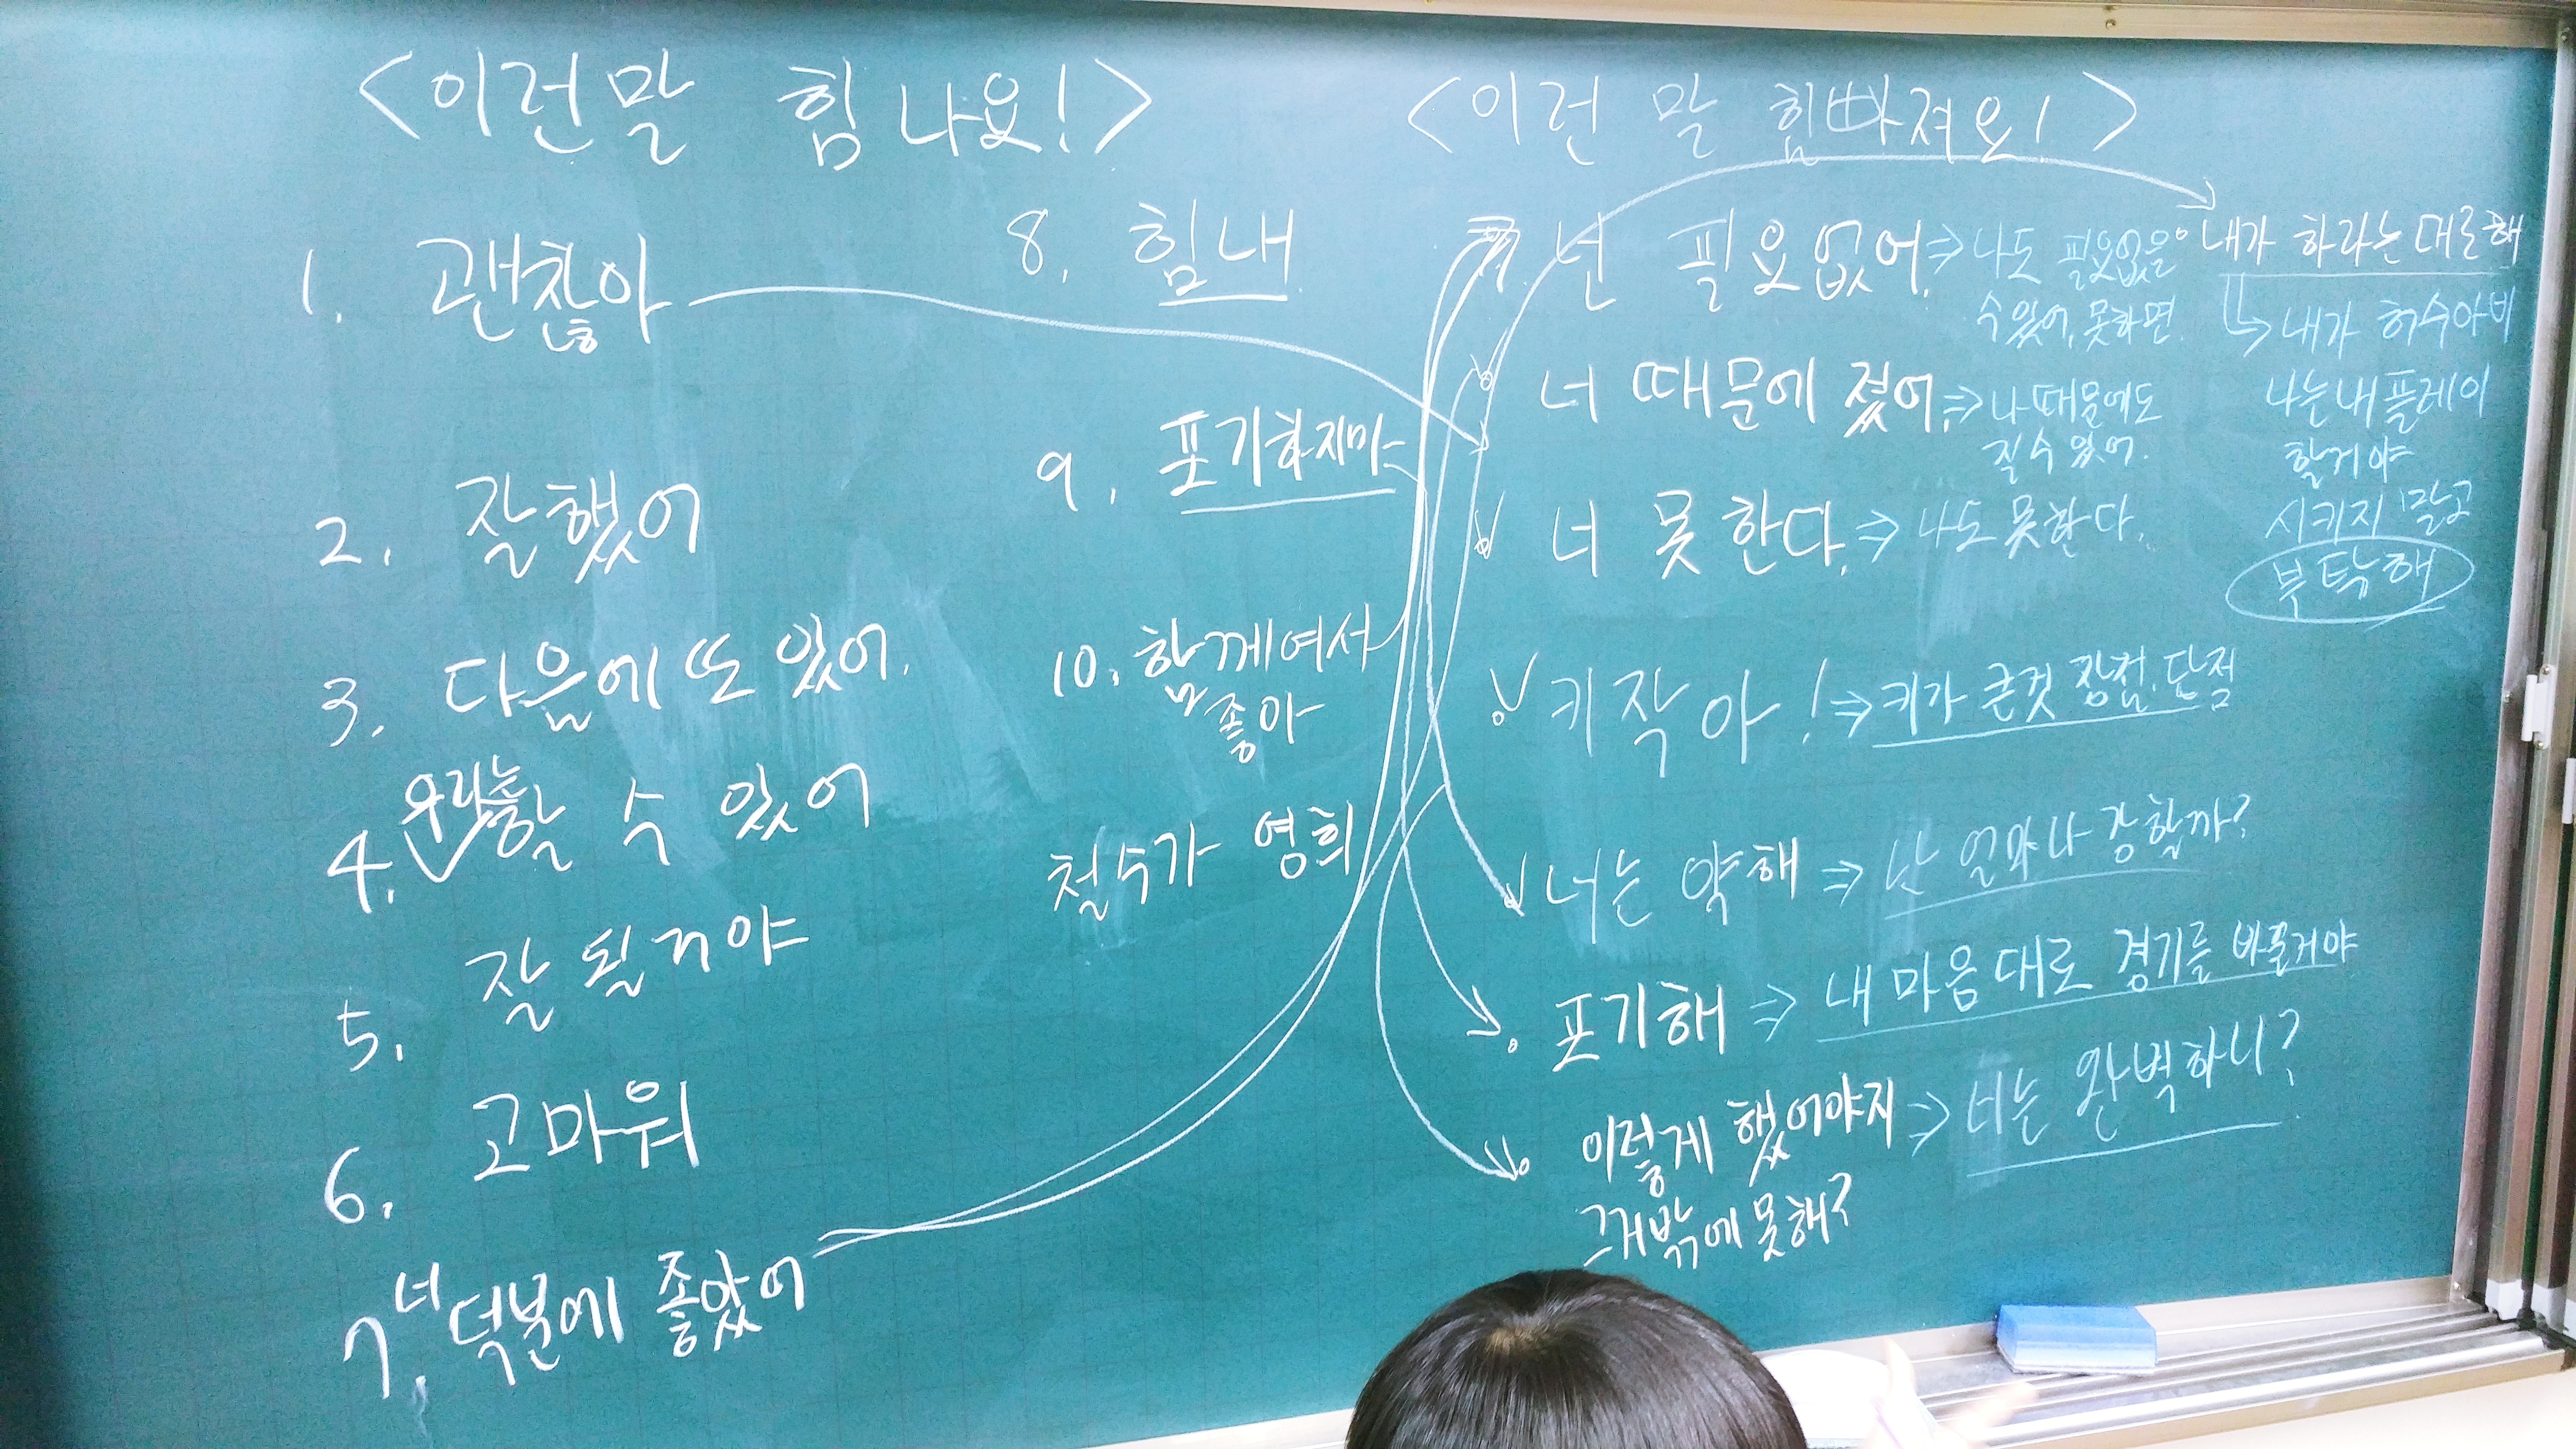 <이런말 힘 나요!>
1. 괜찮아
2. 잘했어
3. 다음에 또 있어.
4. 우리는 할 수 있어
5. 잘 될거야
6. 고마워
7. 너 덕분에 좋았어
8. 힘내
9. 포기하지마
10. 함께여서
좋아
철수가 영희
<이런 말 힘빠져요!>
넌 필요없어. ⇒ 나도 필요없을
수 있어, 못하면.
너 때문에 졌어. ⇒ 나 때문에도
질 수 있어.
너 못 한다. ⇒ 나도 못한다.
키 작아! ⇒ 키가 큰것 장점, 단점
너는 약해 ⇒ 난 얼마나 강할까?
포기해 ⇒ 내 마음대로 경기를 바꿀거야
이렇게 했어야지 ⇒ 너는 완벽하니?
그거밖에 못해?
내가 하라는 대로 해
↳ 내가 허수아비
나는 내 플레이
할거야
시키지 말고
부탁해